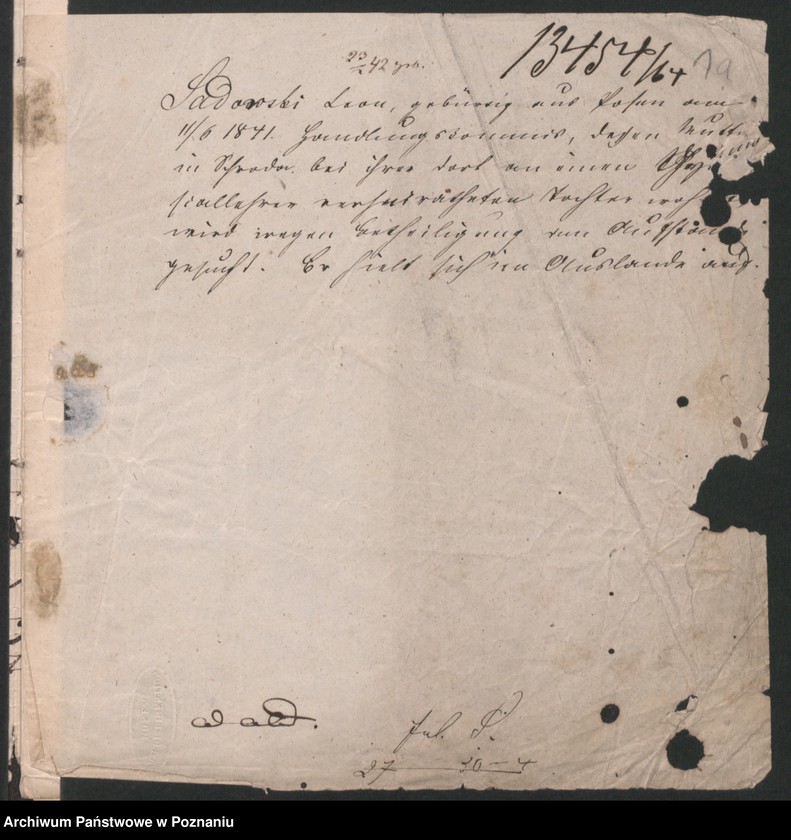 13454/64
Sadowski Leon, gebürtig aus Posen am
11/6 1841. Handlungscommis, dessen Mutter
in Schroda bei ihrer dort an einen Gymna
siallehrer verheiratheten Tochter
wird wegen Betheiligung am Aufstande
gesucht. Er hielt sich im Auslande auf.
ad acta.
27 30-4
Archiwum Państwowe w Poznaniu